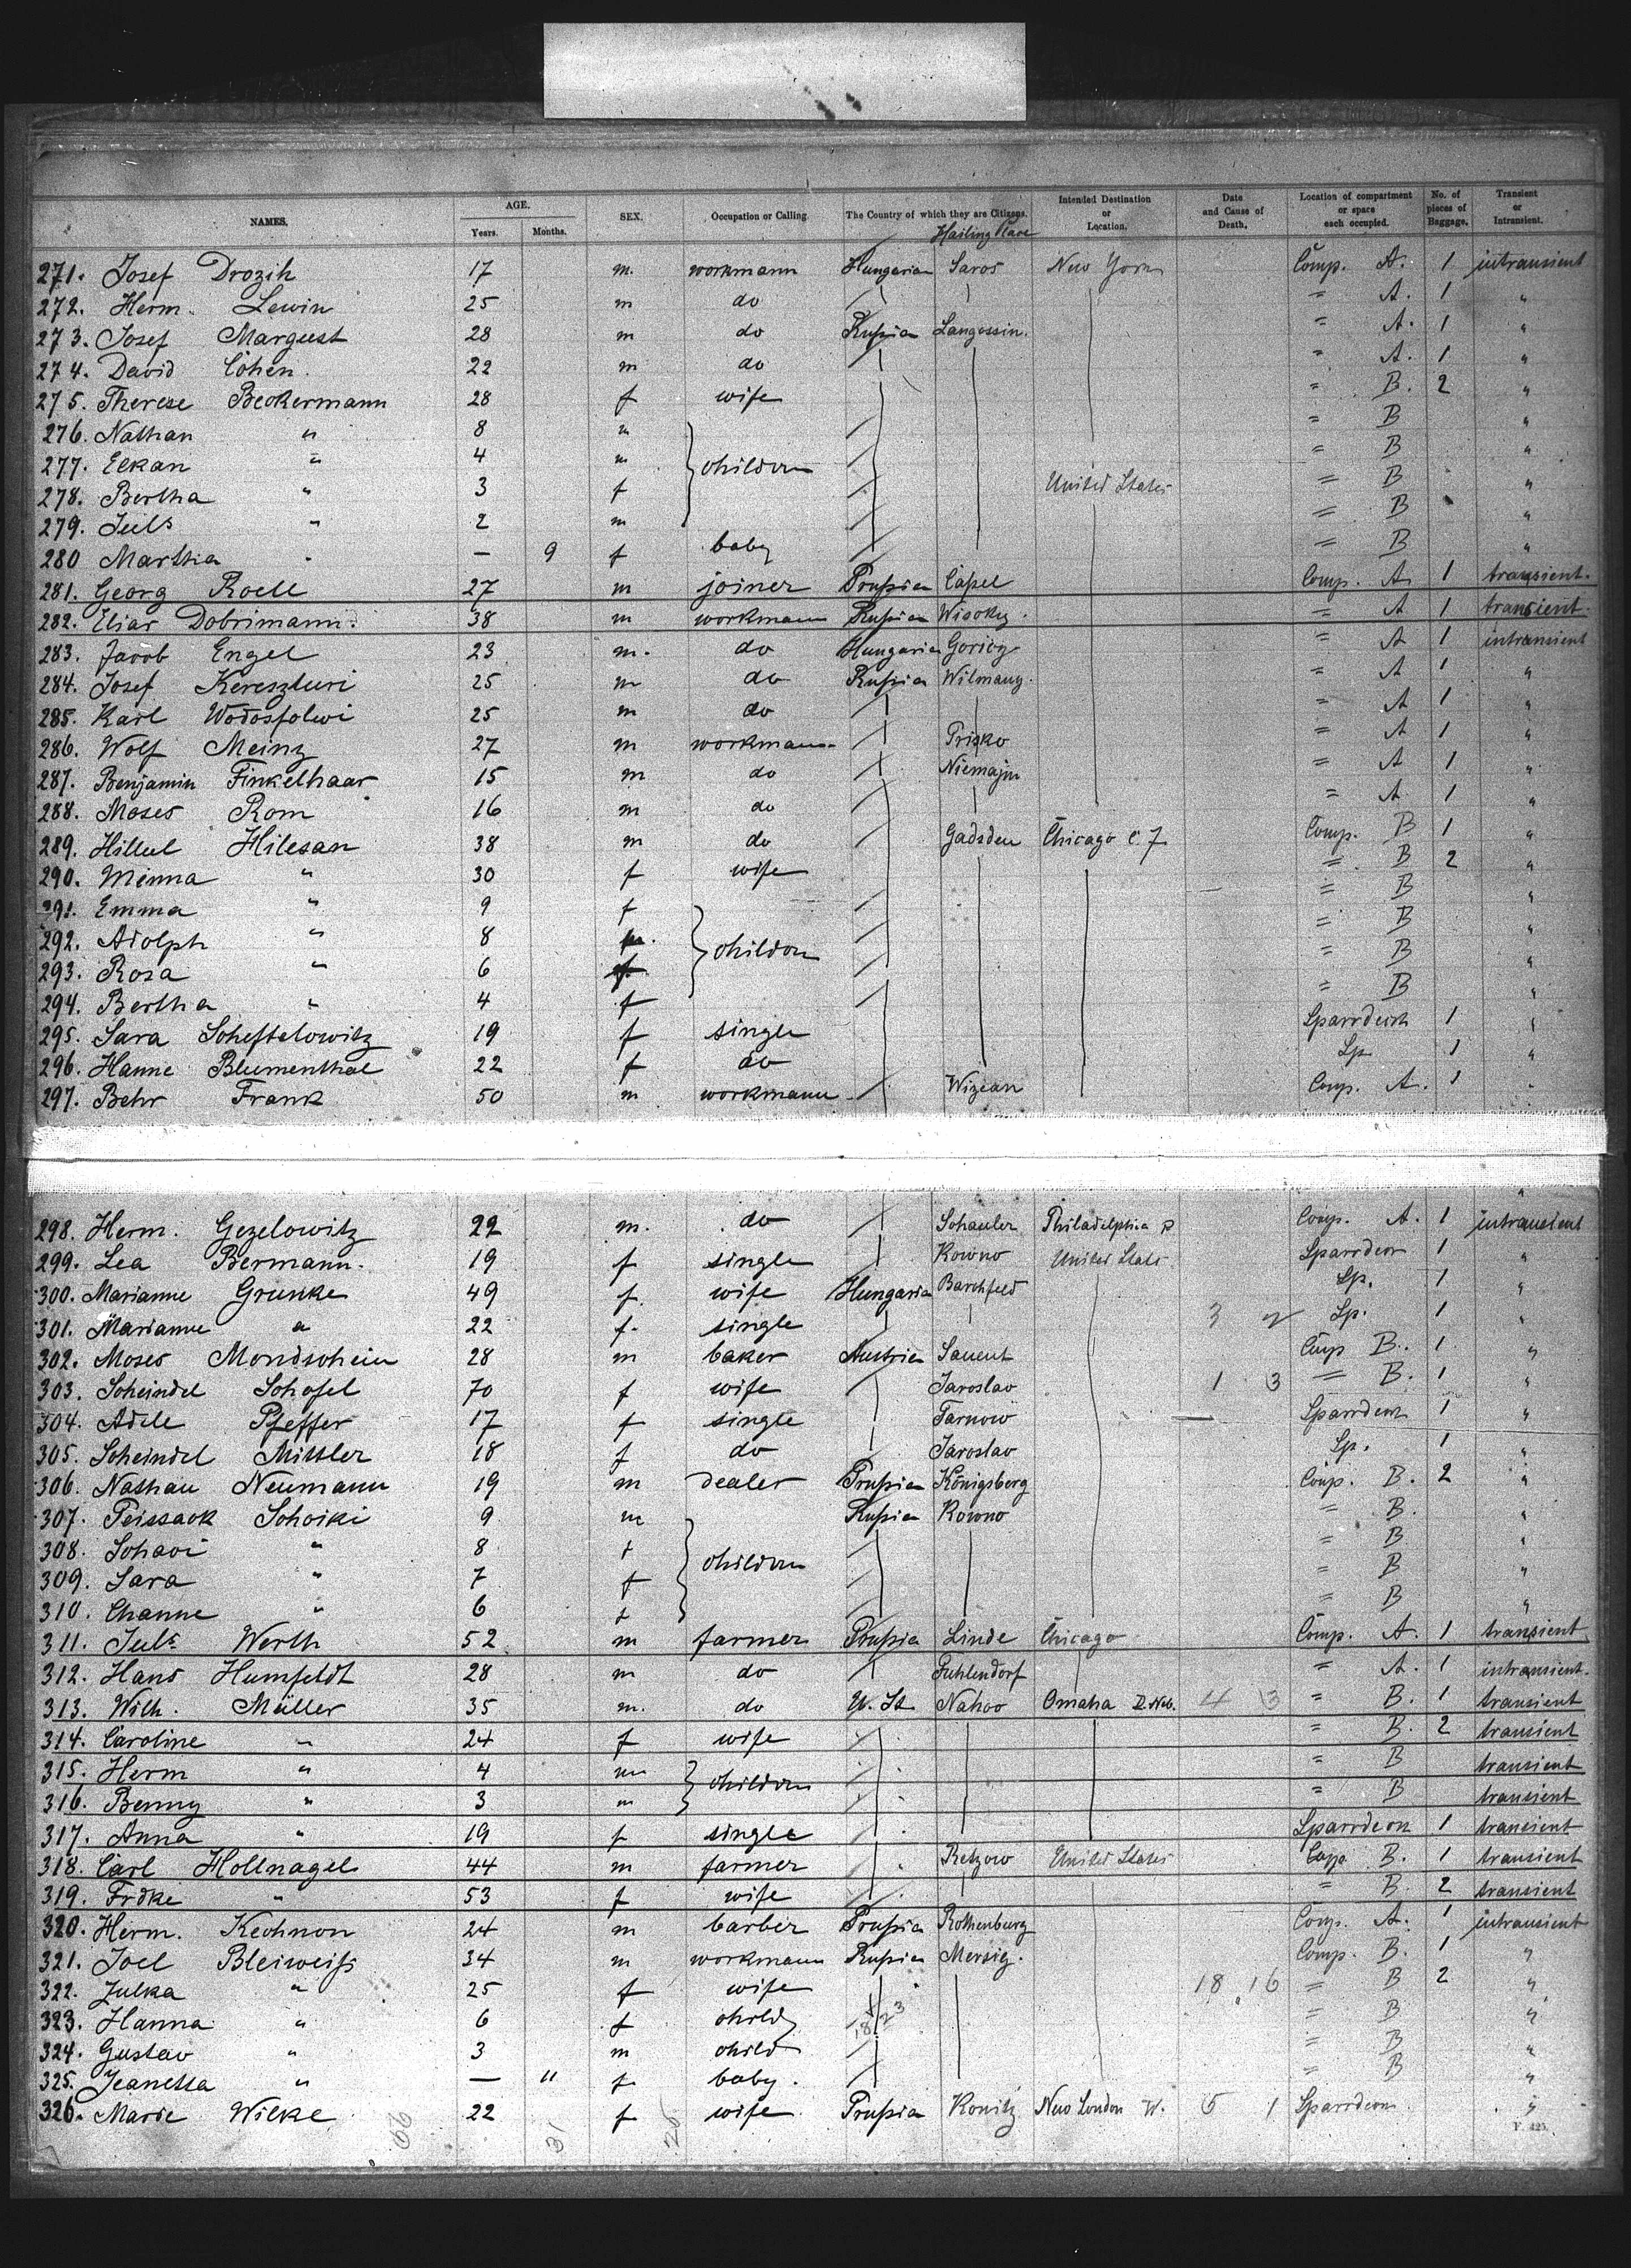 NAMES. AGE. Years. Months. SEX. Occupation or Calling. The Country of which they are Citizens. Hailing Place Intended Destination or Location. Date and Cause of Death. Location of compartment or space each occupied. No. of pieces of Baggage. Transient or Intransient.
271. Josef Drozih 17 m. workmann Hungarian Saros New York Comp. A. 1 intransient
272. Herm. Lewin 25 m do = A. 1 "
273. Josef Margust 28 m do Russia Langossin. = A. 1 "
274. David Cohen 22 m do = A. 1 "
275. Therese Beckermann 28 f wife = B. 2 "
276. Nathan " 8 m = B "
277. Elkan " 4 m children = B "
278. Bertha " 3 f United States = B "
279. Juls " 2 m = B "
280 Martha " — 9 f baby = B "
281. Georg Roell 27 m joiner Prussia Capel Comp. A 1 transient.
282. Elias Dobrimann. 38 m workmann Russia Wisoky. = A 1 transient.
283. Jacob Engel 23 m. do Hungaria = A 1 intransient
284. Josef Kereszturi 25 m do Russia = A 1 "
285. Karl 25 m do = A 1 "
286. Wolf Meinz 27 m workmann = Prisko = A 1 "
287. Benjamin Finkelhaar 15 m do = A 1 "
288. Moses Rom 16 m do = A 1 "
289. Hillel Hilesan 38 m do Gadsden Chicago Comp. B 1 "
290. Minna " 30 f wife = B 2 "
291. Emma " 9 f = B
292. Adolph " 8 m. children = B "
293. Rosa " 6 f = B "
294. Bertha " 4 f = B "
295. Sara Scheftelowitz 19 f single Sparrdeck 1 "
296. Hanne Blumenthal 22 f do Sp 1 "
297. Behr Frank 50 m workmann Wizean Comp. A. 1
298. Herm. Gezelowitz 22 m. do Schauler Philadelphia P Comp. A. 1 intransient
299. Lea Bermann. 19 f single Kowno United States Sparrdeck 1 "
300. Marianne Grunke 49 f wife Hungaria Barchfeld Sp. 1 "
301. Marianne " 22 f. single 3 2 Sp. 1 "
302. Moses Mondschein 28 m baker Austria Comp B. 1 "
303. Scheindel Schofel 70 f wife Jaroslav 1 3 = B. 1 "
304. Adele Pfeffer 17 f single Tarnow Sparrdeck 1 "
305. Scheindel Mittler 18 f do Jaroslav Sp. 1 "
306. Nathan Neumann 19 m dealer Prussia Königsberg Comp. B. 2 "
307. Peissack Schoiki 9 m Russia Kowno = B. "
308. " 8 f children = B "
309. Sara " 7 f = B "
310. Channe " 6 f = B "
311. Juls Werth 52 m farmer Prussia Linde Chicago Comp. A. 1 transient
312. Hans Humfeldt 28 m do Fuhlendorf = A. 1 intransient.
313. Wilh. Müller 35 m. do U. St Nahoo Omaha Neb. 4 3 = B. 1 transient
314. Caroline " 24 f wife = B. 2 transient
315. Herm " 4 m children = B transient
316. Benny " 3 m = B transient
317. Anna " 19 f single Sparrdeck 1 transient
318. Carl Hollnagel 44 m farmer Retzow United States Comp B. 1 transient
319. Frdke " 53 f wife = B. 2 transient
320. Herm. Kechnon 24 m barber Prussia Rothenburg Comp. A. 1 intransient
321. Joel Bleiweiss 34 m workmann Russia Merzig. Comp. B. 1 "
322. Julka " 25 f wife 18 16 = B 2 "
323. Hanna " 6 f child = B "
324. Gustav " 3 m child = B "
325. Jeanetta " — 11 f baby. = B "
326. Marie Wilke 22 f wife Prussia Konitz New London W. 5 1 Sparrdeck "